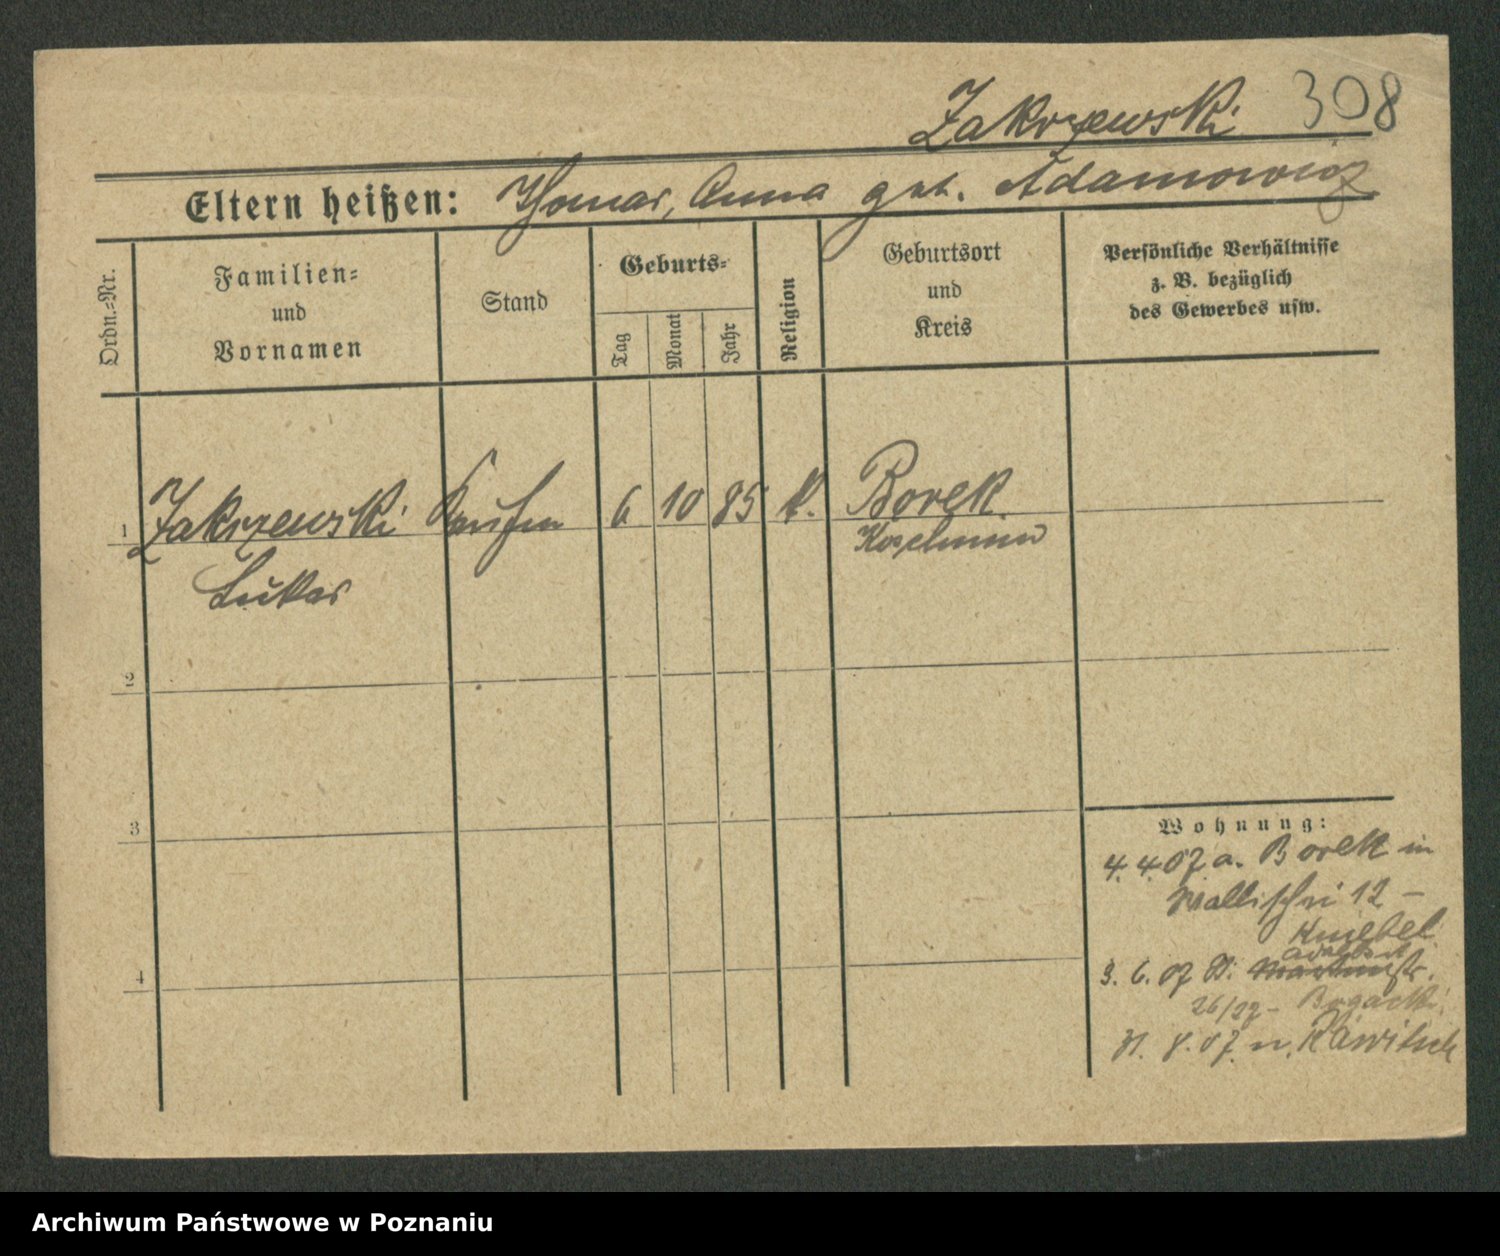 Zakrzewski 308
Eltern heißen: Thomas, Anna geb. Adamowicz
Ordn.=Nr.
Familien=
und
Vornamen
Stand
Geburts=
Tag
Monat
Jahr
Religion
Geburtsort
und
Kreis
Persönliche Verhältnisse
z. B. bezüglich
des Gewerbes usw.
1 Zakrzewski 6 10 85 k. Borek
Lukas Koschmin
2
3
4
Wohnung:
4. 4. 07 a. Borek in
Wallischei 12 -
Kniebel
3. 6. 07
26/27 - Bogacki
31. 8. 07 n. Rawitsch
Archiwum Państwowe w Poznaniu